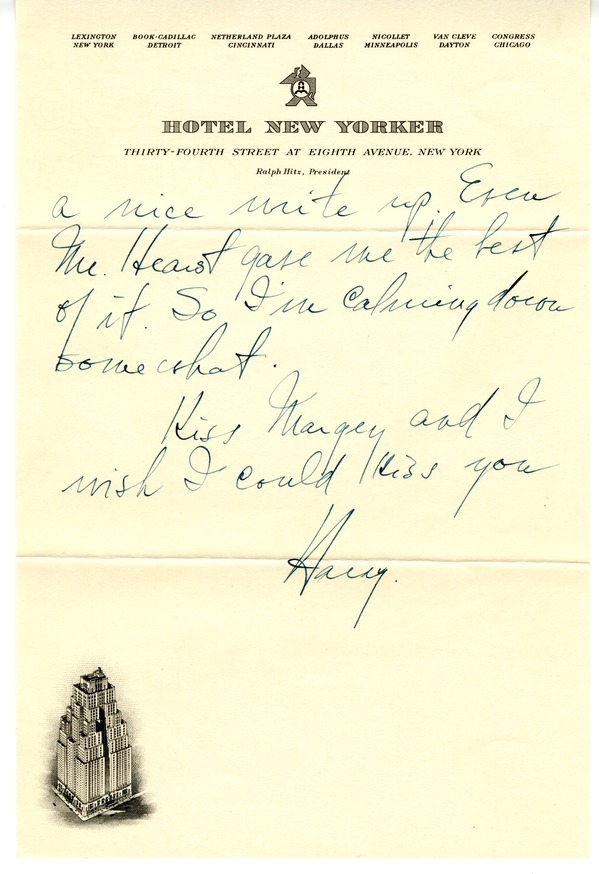 LEXINGTON BOOK-CADILLAC NETHERLAND PLAZA ADOLPHUS NICOLLET VAN CLEVE CONGRESS
NEW YORK DETROIT CINCINNATI DALLAS MINNEAPOLIS DAYTON CHICAGO
HOTEL NEW YORKER
THIRTY-FOURTH STREET AT EIGHTH AVENUE, NEW YORK
Ralph Hitz, President
a nice write up. Even
Mr. Hearst gave me the best
of it. So I'm calming down
somewhat.
Kiss Margey and I
wish I could kiss you
Harry.